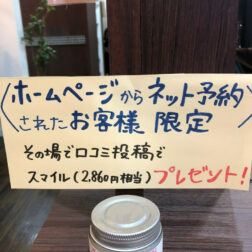 〈ホームページからネット予約
されたお客様 限定〉
その場で口コミ投稿で
スマイル(2,860円相当)プレゼント!